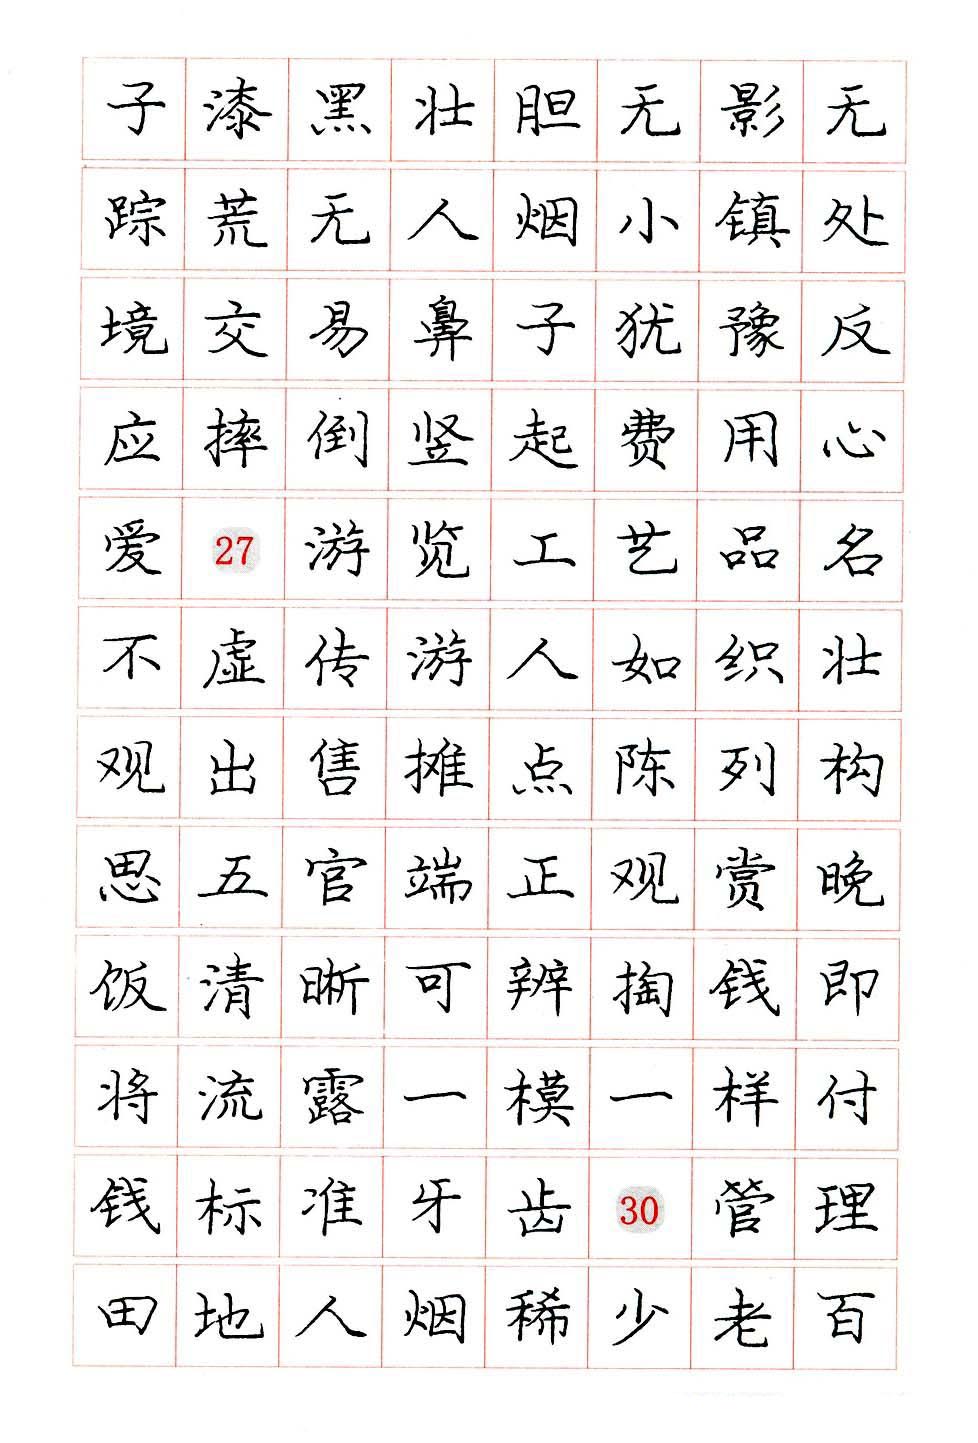 子漆黑壮胆无影无
踪荒无人烟小镇处
境交易鼻子犹豫反
应摔倒竖起费用心
爱27游览工艺品名
不虚传游人如织壮
观出售摊点陈列构
思五官端正观赏晚
饭清晰可辨掏钱即
将流露一模一样付
钱标准牙齿30管理
田地人烟稀少老百